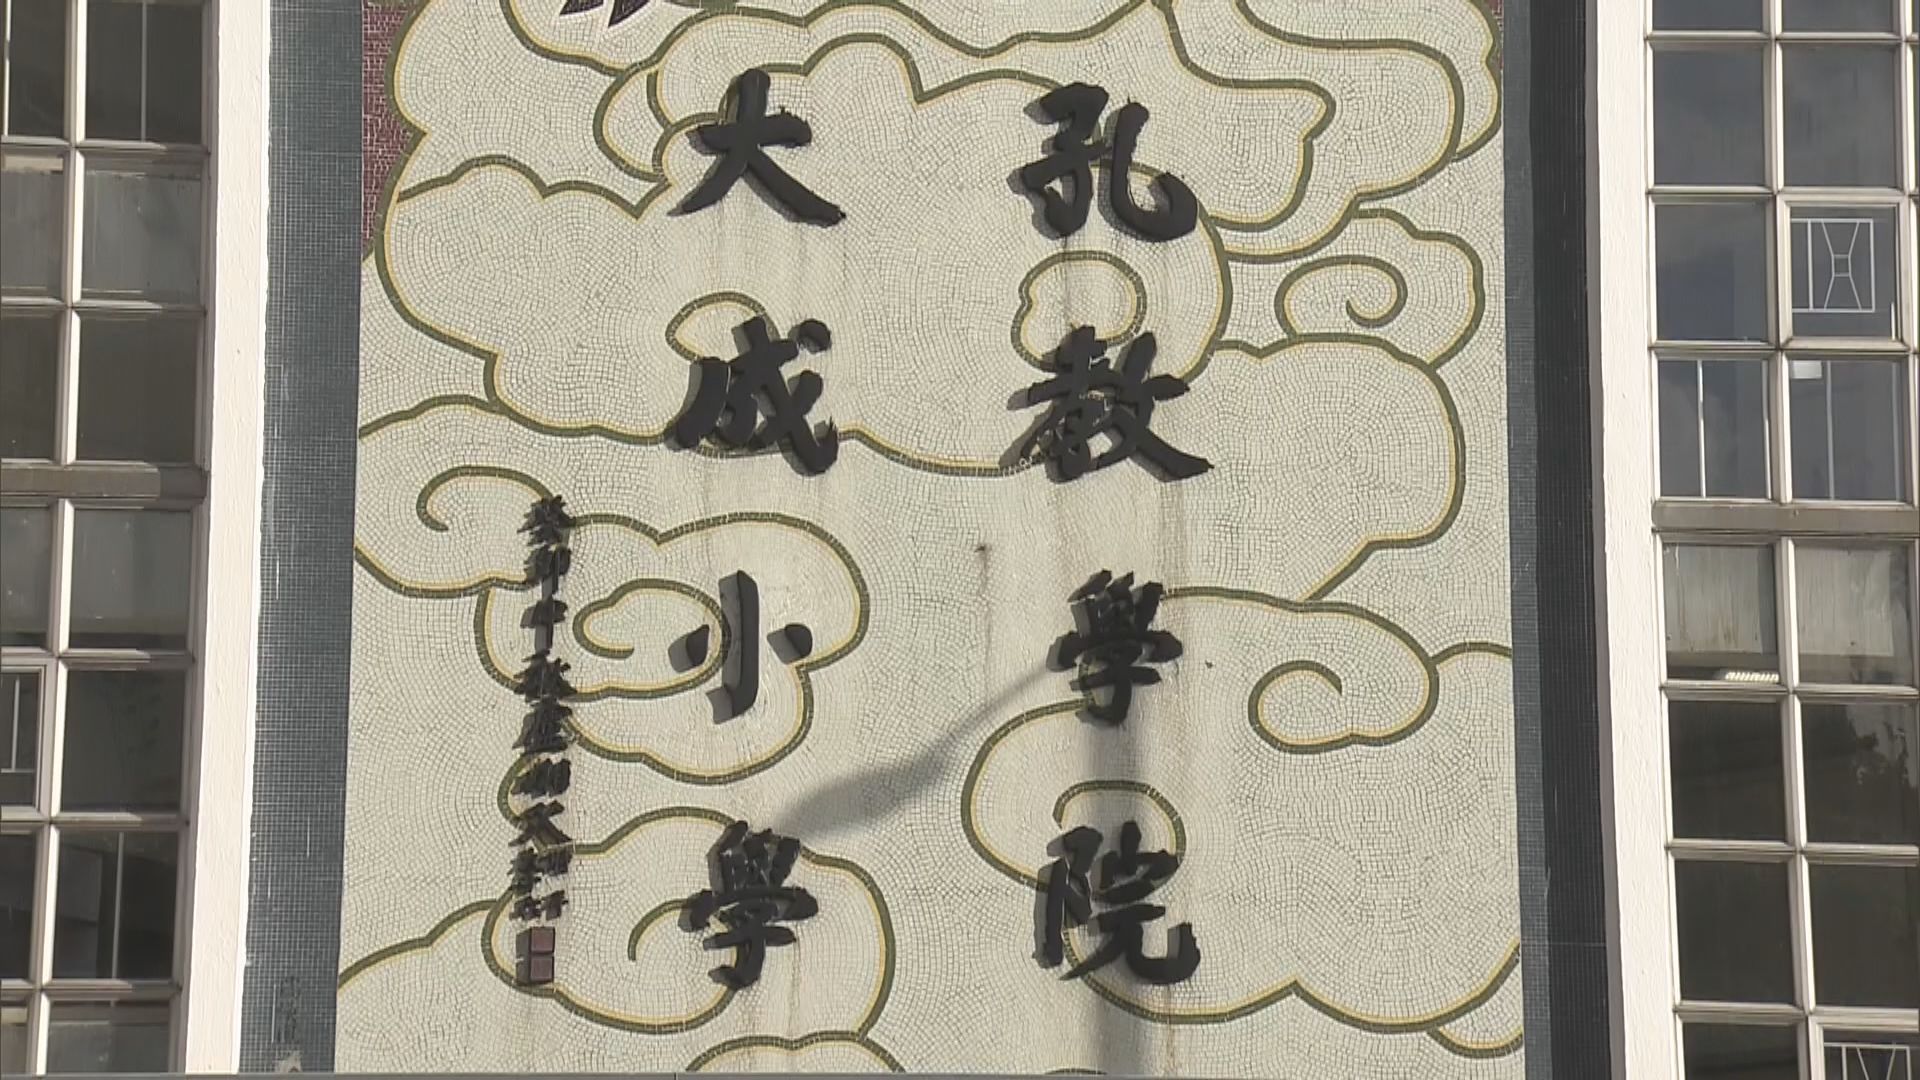 孔教學院
大成小學